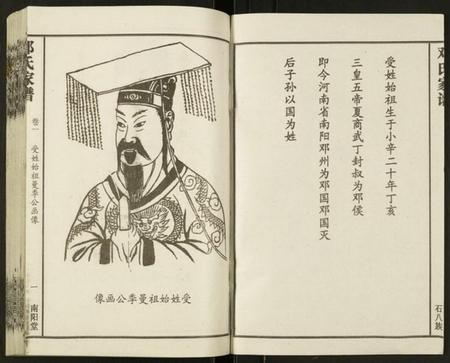 邓氏家谱
受姓始祖生于小辛二十年丁亥
三皇五帝夏商武丁封叔为邓侯
即今河南省南阳邓州为邓国邓国灭
后子孙以国为姓
石八族
邓氏家谱
卷一
受姓始祖曼季公画像
一
南阳堂
受姓始祖曼季公画像